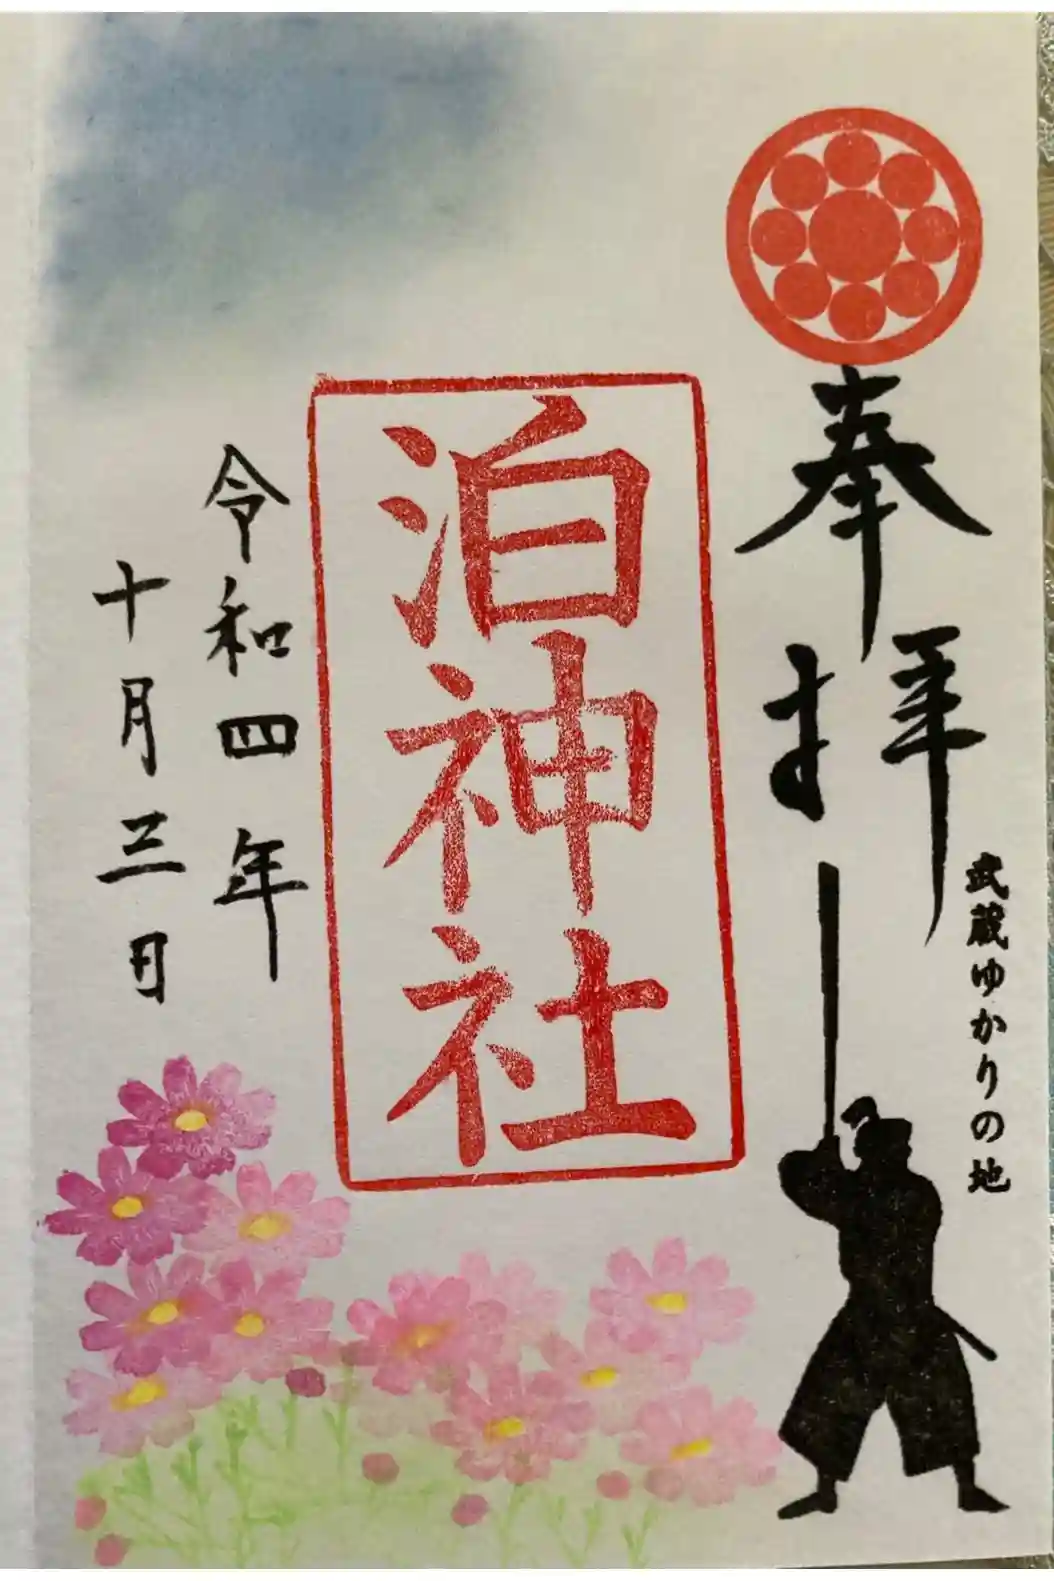 奉拝
武蔵ゆかりの地
泊神社
令和四年
十月三日